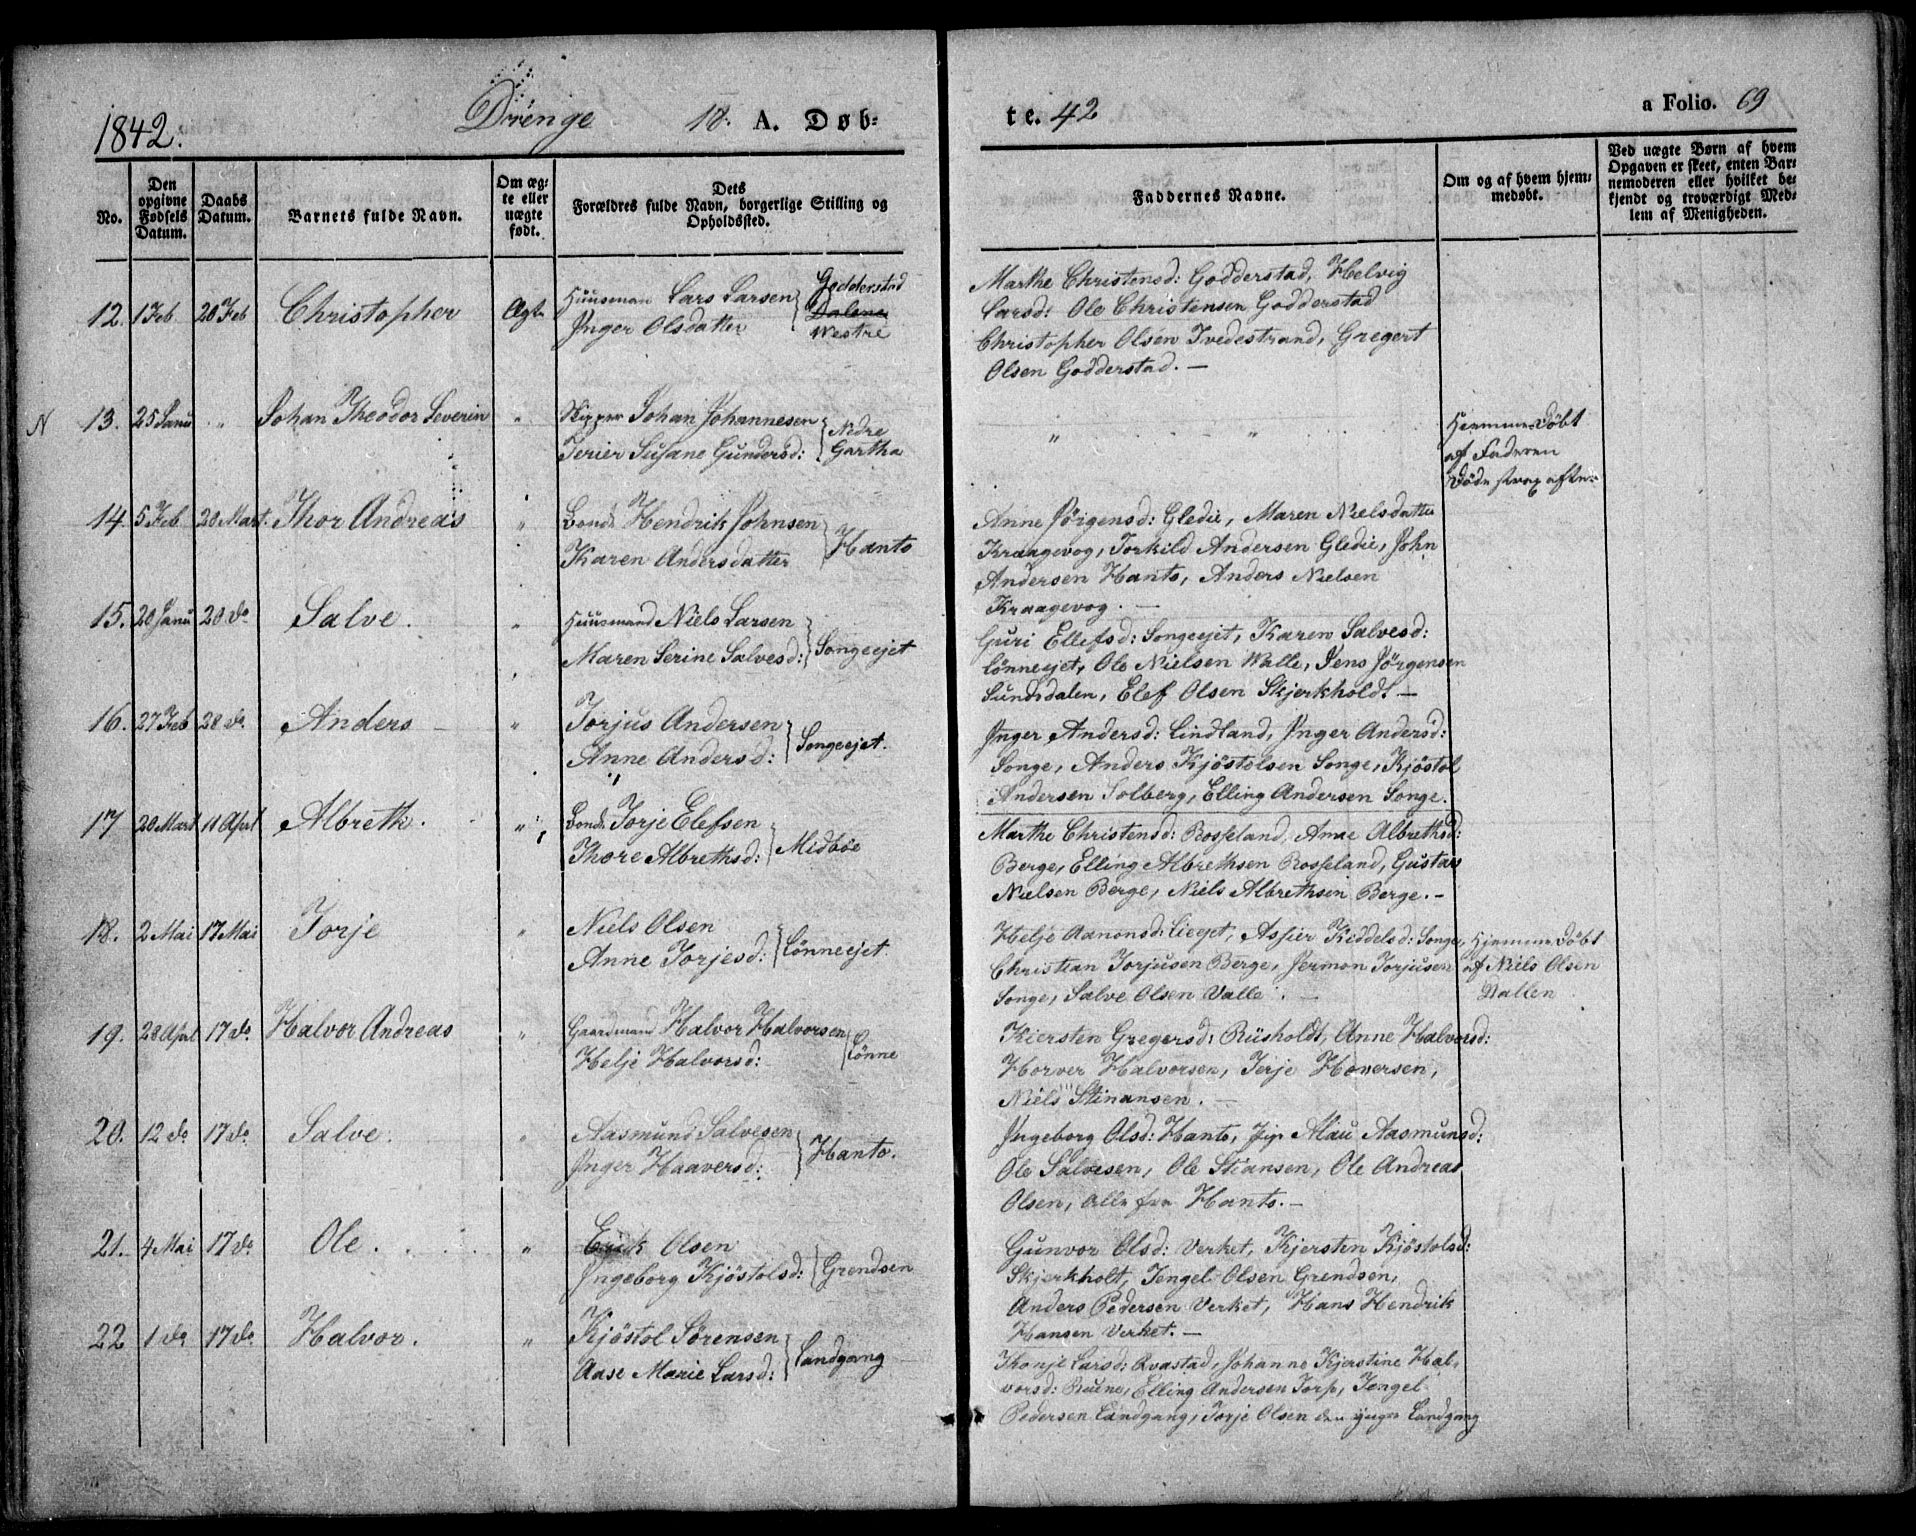 1842. Drenge 18. A. Døb-
te. 42 a Folio. 69
No.
Den
opgivne
Fødsels
Datum.
Daabs
Datum.
Barnets fulde Navn.
Om æg-
te eller
uægte
født.
Dets
Forældres fulde Navn, borgerlige Stilling og
Opholdssted.
Faddernes Navne.
Om og af hvem hjem-
medøbt.
Ved uægte Børn af hvem
Opgaven er skeet, enten Bar-
nemoderen eller hvilket be-
kjendt og troværdigt Med-
lem af Menigheden.
12. 1 Feb 20 Feb Christopher Ægte
Huusman Lars Larsen
Inger Olsdatter
Godderstad
Dalene
Westre
Marthe Christensd: Godderstad, Helvig
Larsd: Ole Christensen Godderstad
Christopher Olsen Tvedestrand, Gregert
Olsen Godderstad. —
N 13. 25 Janu " Johan Theodor Severin "
Skipper Johan Johannesen
Terier Susane Gundersd:
Nedre
Gartha
" "
Hjemme Døbt
af Faderen
Døde strax efter
14. 5 Feb 20 Mart. Thor Andreas "
Bonde Hendrik Johnsen
Karen Andersdatter
Hanto
Anne Jørgensd: Gledie, Maren Nielsdatter
Kraagevog, Torkild Andersen Gledie, John
Andersen Hanto, Anders Nielsen
Kraagevog. —
15. 20 Janu 20 do Salve. "
Huusmand Niels Larsen
Maren Serine Salvesd:
Songeejet
Guri Ellefsd: Songeejet, Karen Salvesd:
Lønneejet, Ole Nielsen Walle, Jens Jørgensen
Sundsdalen, Elef Olsen Skjerkholdt —
16. 27 Feb 28 do Anders "
Torjus Andersen
Anne Andersd:
Songeejet.
Inger Andersd: Lindland, Inger Andersd:
Songe, Anders Kjöstolsen Songe, Kjöstol
Andersen Solberg, Elling Andersen Songe.
17 20 Mart 11 April Albreth. "
Bonde Torje Elefsen
Thore Albrethsd:
Midböe
Marthe Christensd: Rosseland, Anne Albrethsd:
Berge, Elling Albrethsen Rosseland, Gustav
Nielsen Berge, Niels Albrethsen Berge. —
18. 2 Mai 17 Mai Torje "
Niels Olsen
Anne Torjesd:
Lønneejet.
Helje Aanonsd: Lieejet, Asfier Keddelsd: Songe,
Christian Torjusen Berge, Jermon Torjusen
Songe, Salve Olsen Valle. —
Hjemme Døbt
af Niels Olsen
Vallen
19. 28 April 17 do Halvor Andreas "
Gaardmand Halvor Halvorsen
Helje Halvorsd:
Lønne
Kiersten Gregersd: Rüsholdt, Anne Halvorsd:
Horver Halvorsen, Terje Hoversen,
Niels Stinansen. —
20. 12 do 17 do Salve. "
Aasmund Salvesen
Inger Haaversd:
Hanto.
Ingeborg Olsd: Hanto, Aasmunsd:
Ole Salvesen, Ole Stiansen, Ole Andreas
Olsen, alle fra Hanto. —
21. 4 Mai 17 do Ole. "
Erik Olsen
Ingeborg Kjöstolsd:
Grendsen
Gunvor Olsd: Verket, Kjersten Kjöstolsd:
Skjerkholt, Tengel Olsen Grendsen,
Anders Pedersen Verket, Hans Hendrik
Hansen Verket. —
22 1 do 17 do Halvor. "
Kjöstol Sörensen
Aase Marie Larsd:
Landgang
Thonje Larsd: Qvastad, Johanne Kjerstine Hal-
vorsd: Ruene, Elling Andersen Torp, Tengel
Pedersen Landgang, Torje Olsen den yngre Landgang